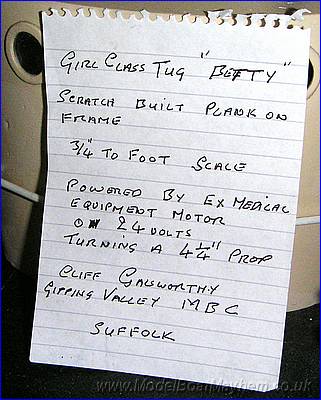 GIRL CLASS TUG "BETTY"
SCRATCH BUILT PLANK ON
FRAME
3/4" TO FOOT SCALE
POWERED BY EX MEDICAL
EQUIPMENT MOTOR
ON 24 VOLTS
TURNING A 4 1/4" PROP
CLIFF GALSWORTHY
GIPPING VALLEY MBC
SUFFOLK
www.ModelBoatMayhem.co.uk